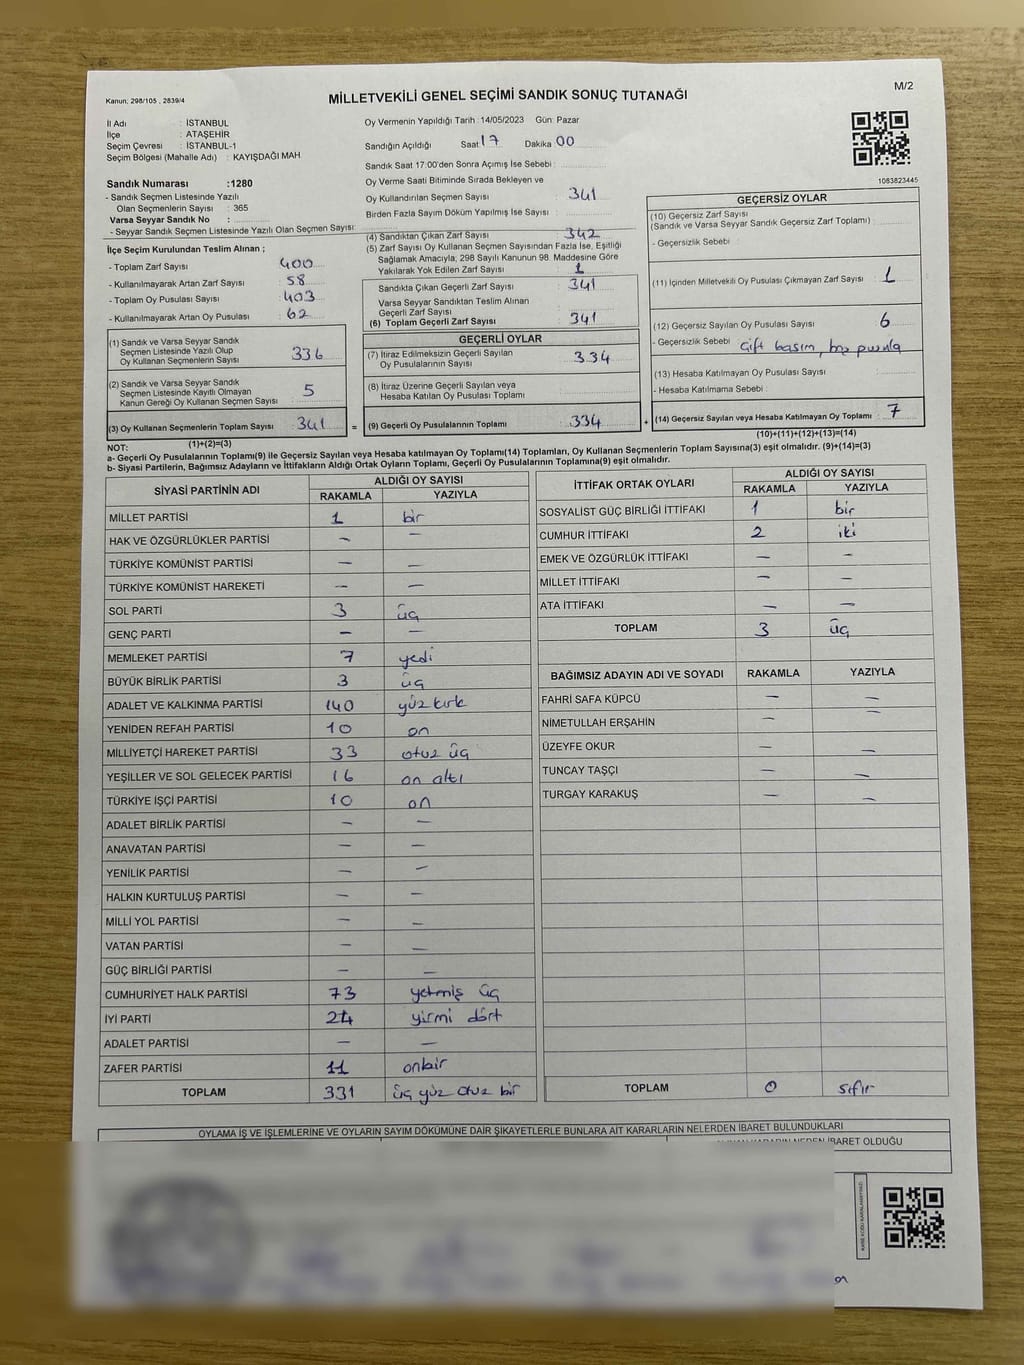 Kanun; 298/105 , 2839/4
M/2
MİLLETVEKİLİ GENEL SEÇİMİ SANDIK SONUÇ TUTANAĞI
İl Adı : İSTANBUL
İlçe : ATAŞEHİR
Seçim Çevresi : İSTANBUL-1
Seçim Bölgesi (Mahalle Adı) : KAYIŞDAĞI MAH
Sandık Numarası :1280
- Sandık Seçmen Listesinde Yazılı
Olan Seçmenlerin Sayısı : 365
Varsa Seyyar Sandık No :
- Seyyar Sandık Seçmen Listesinde Yazılı Olan Seçmen Sayısı:
İlçe Seçim Kurulundan Teslim Alınan ;
- Toplam Zarf Sayısı 400
- Kullanılmayarak Artan Zarf Sayısı : 58
- Toplam Oy Pusulası Sayısı : 403
- Kullanılmayarak Artan Oy Pusulası : 62
(1) Sandık ve Varsa Seyyar Sandık
Seçmen Listesinde Yazılı Olup
Oy Kullanan Seçmenlerin Sayısı : 336
(2) Sandık ve Varsa Seyyar Sandık
Seçmen Listesinde Kayıtlı Olmayan
Kanun Gereği Oy Kullanan Seçmen Sayısı : 5
(3) Oy Kullanan Seçmenlerin Toplam Sayısı : 341
(1)+(2)=(3)
Oy Vermenin Yapıldığı Tarih : 14/05/2023 Gün: Pazar
Sandığın Açıldığı Saat 17 Dakika 00
Sandık Saat 17:00'den Sonra Açımış İse Sebebi :
Oy Verme Saati Bitiminde Sırada Bekleyen ve
Oy Kullandırılan Seçmen Sayısı : 341
Birden Fazla Sayım Döküm Yapılmış İse Sayısı :
(4) Sandıktan Çıkan Zarf Sayısı : 342
(5) Zarf Sayısı Oy Kullanan Seçmen Sayısından Fazla İse, Eşitliği
Sağlamak Amacıyla; 298 Sayılı Kanunun 98. Maddesine Göre
Yakılarak Yok Edilen Zarf Sayısı : 1
Sandıkta Çıkan Geçerli Zarf Sayısı : 341
Varsa Seyyar Sandıktan Teslim Alınan
Geçerli Zarf Sayısı :
(6) Toplam Geçerli Zarf Sayısı : 341
GEÇERLİ OYLAR
(7) İtiraz Edilmeksizin Geçerli Sayılan
Oy Pusulalarının Sayısı : 334
(8) İtiraz Üzerine Geçerli Sayılan veya
Hesaba Katılan Oy Pusulası Toplamı :
= (9) Geçerli Oy Pusulalarının Toplamı : 334 +
1083823445
GEÇERSİZ OYLAR
(10) Geçersiz Zarf Sayısı
(Sandık ve Varsa Seyyar Sandık Geçersiz Zarf Toplamı) :
- Geçersizlik Sebebi :
(11) İçinden Milletvekili Oy Pusulası Çıkmayan Zarf Sayısı : 1
(12) Geçersiz Sayılan Oy Pusulası Sayısı : 6
- Geçersizlik Sebebi : Çift basım, boş pusula
(13) Hesaba Katılmayan Oy Pusulası Sayısı :
- Hesaba Katılmama Sebebi :
(14) Geçersiz Sayılan veya Hesaba Katılmayan Oy Toplamı : 7
(10)+(11)+(12)+(13)=(14)
NOT:
a- Geçerli Oy Pusulalarının Toplamı(9) ile Geçersiz Sayılan veya Hesaba katılmayan Oy Toplamı(14) Toplamları, Oy Kullanan Seçmenlerin Toplam Sayısına(3) eşit olmalıdır. (9)+(14)=(3)
b- Siyasi Partilerin, Bağımsız Adayların ve İttifakların Aldığı Ortak Oyların Toplamı, Geçerli Oy Pusulalarının Toplamına(9) eşit olmalıdır.
SİYASİ PARTİNİN ADI ALDIĞI OY SAYISI
RAKAMLA YAZIYLA
MİLLET PARTİSİ 1 bir
HAK VE ÖZGÜRLÜKLER PARTİSİ — —
TÜRKİYE KOMÜNİST PARTİSİ — —
TÜRKİYE KOMÜNİST HAREKETİ — —
SOL PARTİ 3 üç
GENÇ PARTİ — —
MEMLEKET PARTİSİ 7 yedi
BÜYÜK BİRLİK PARTİSİ 3 üç
ADALET VE KALKINMA PARTİSİ 140 yüz kırk
YENİDEN REFAH PARTİSİ 10 on
MİLLİYETÇİ HAREKET PARTİSİ 33 otuz üç
YEŞİLLER VE SOL GELECEK PARTİSİ 16 on altı
TÜRKİYE İŞÇİ PARTİSİ 10 on
ADALET BİRLİK PARTİSİ — —
ANAVATAN PARTİSİ — —
YENİLİK PARTİSİ — —
HALKIN KURTULUŞ PARTİSİ — —
MİLLİ YOL PARTİSİ — —
VATAN PARTİSİ — —
GÜÇ BİRLİĞİ PARTİSİ — —
CUMHURİYET HALK PARTİSİ 73 yetmiş üç
İYİ PARTİ 24 yirmi dört
ADALET PARTİSİ — —
ZAFER PARTİSİ 11 onbir
TOPLAM 331 üç yüz otuz bir
İTTİFAK ORTAK OYLARI ALDIĞI OY SAYISI
RAKAMLA YAZIYLA
SOSYALİST GÜÇ BİRLİĞİ İTTİFAKI 1 bir
CUMHUR İTTİFAKI 2 iki
EMEK VE ÖZGÜRLÜK İTTİFAKI — —
MİLLET İTTİFAKI — —
ATA İTTİFAKI — —
TOPLAM 3 üç
BAĞIMSIZ ADAYIN ADI VE SOYADI RAKAMLA YAZIYLA
FAHRİ SAFA KÜPCÜ — —
NİMETULLAH ERŞAHİN — —
ÜZEYFE OKUR — —
TUNCAY TAŞÇI — —
TURGAY KARAKUŞ — —
TOPLAM 0 sıfır
OYLAMA İŞ VE İŞLEMLERİNE VE OYLARIN SAYIM DÖKÜMÜNE DAİR ŞİKAYETLERLE BUNLARA AİT KARARLARIN NELERDEN İBARET BULUNDUKLARI
NEDEN İBARET OLDUĞU